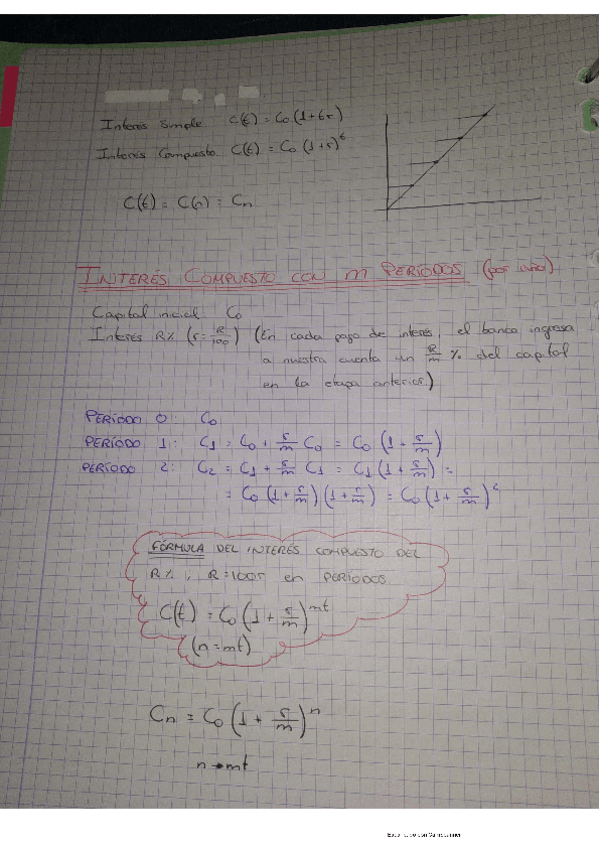 Interés Simple C(t) = C₀ (1+tr)
Interés Compuesto C(t) = C₀ (1+r)^t
C(t) = C(n) = Cn
INTERÉS COMPUESTO CON m PERÍODOS (por año)
Capital inicial C₀
Interés R% (r = R/100) (En cada pago de interés, el banco ingresa
a nuestra cuenta un R/m % del capital
en la etapa anterior)
PERÍODO 0: C₀
PERÍODO 1: C₁ = C₀ + r/m C₀ = C₀ (1 + r/m)
PERÍODO 2: C₂ = C₁ + r/m C₁ = C₁ (1 + r/m) =
= C₀ (1 + r/m) (1 + r/m) = C₀ (1 + r/m)²
FÓRMULA DEL INTERÉS COMPUESTO DEL
R%, R=100r en PERÍODOS
C(t) = C₀ (1 + r/m)^mt
(n = mt)
Cn = C₀ (1 + r/m)^n
n → mt